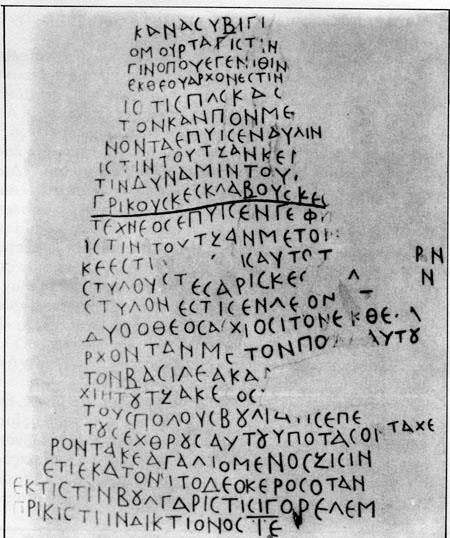 ΚΑΝΑϹΥΒΙΓΙ
ΟΜΟΥΡΤΑΓΙϹΤΙΝ
ΓΙΝΟΠΟΥΕΓΕΝΙΘΙΝ
ΕΚΘΕΟΥΑΡΧΟΝΕϹΤΙΝ
ΙϹΤΙϹΠΛϹΚΑϹ
ΤΟΝΚΑΝΠΟΝΜΕ
ΝΟΝΤΑΕΠΥΙϹΕΝΑΥΛΙΝ
ΙϹΤΙΝΤΟΥΤΖΑΝΚΕΙ
ΤΙΝΔΥΝΑΜΙΝΤΟΥ
ΓΡΙΚΟΥϹΚΕϹΚΛΑΒΟΥϹΚΕ
ΤΕΧΝΕΟϹΕΠΥΙϹΕΝΓΕΦΙ
ΙϹΤΙΝΤΟΥΤΖΑΝΜΕΤΟΙ
ΚΕΕϹΤΙ ΙΚΑΥΤΟΤ ΡΝ
ϹΤΥΛΟΥϹΤΕϹΑΡΙϹΚΕϹ Λ Ν
ϹΤΥΛΟΝΕϹΤΙϹΕΝΛΕΟΝ
ΔΥΟΟΘΕΟϹΑΧΙΟϹΙΤΟΝΕΚΘΕ
ΡΧΟΝΤΑΝΜϹΤΟΝΠΟ ΑΥΤȢ
ΤΟΝΒΑϹΙΛΕΑΚΑ
ΧΙΗΤȢΤΖΑΚΕΟϹ
ΤΟΥϹΠΟΛΟΥϹΒȢΛΙ ΙϹΕΠΕ
ΤȢϹΕΧΘΡȢϹΑΥΤȢΥΠΟΤΑϹΟΙΤΑΧΕ
ΡΟΝΤΑΚΕΑΓΑΛΙΟΜΕΝΟϹΖΙϹΙΝ
ΕΤΙΕΚΑΤΟΝΙΤΟΔΕΟΚΕΡΟϹΟΤΑΝ
ΕΚΤΙϹΤΙΝΒȢΛΓΑΡΙϹΤΙϹΙΓΟΡΕΛΕΜ
ΠΡΙΚΙϹΤΙΙΝΔΙΚΤΙΟΝΟϹΙΕ